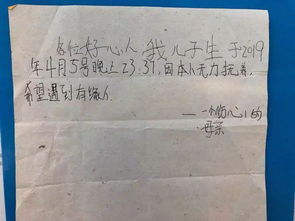 各位好心人,我儿子生于2019
年4月5号晚上23.37,因本人无力抚养,
希望遇到有缘人
——一个伤心的
母亲